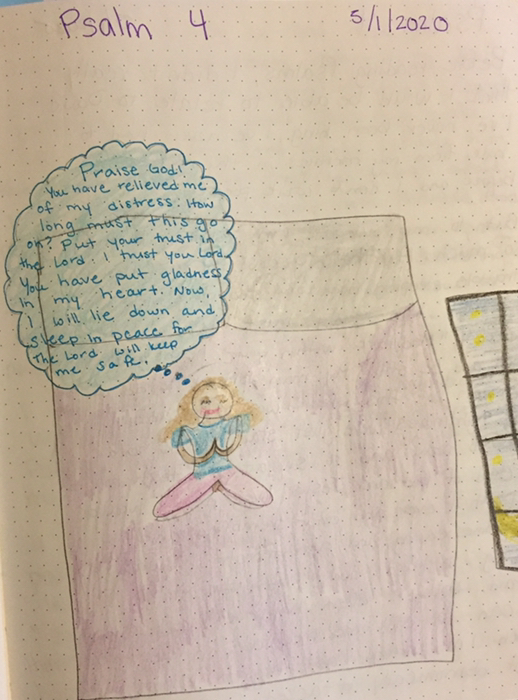 Psalm 4
5/1/2020
Praise God!
You have relieved me
of my distress. How
long must this go
on? Put your trust in
the Lord. I trust you Lord.
You have put gladness
in my heart. Now,
I will lie down and
sleep in peace for
the Lord will keep
me safe.